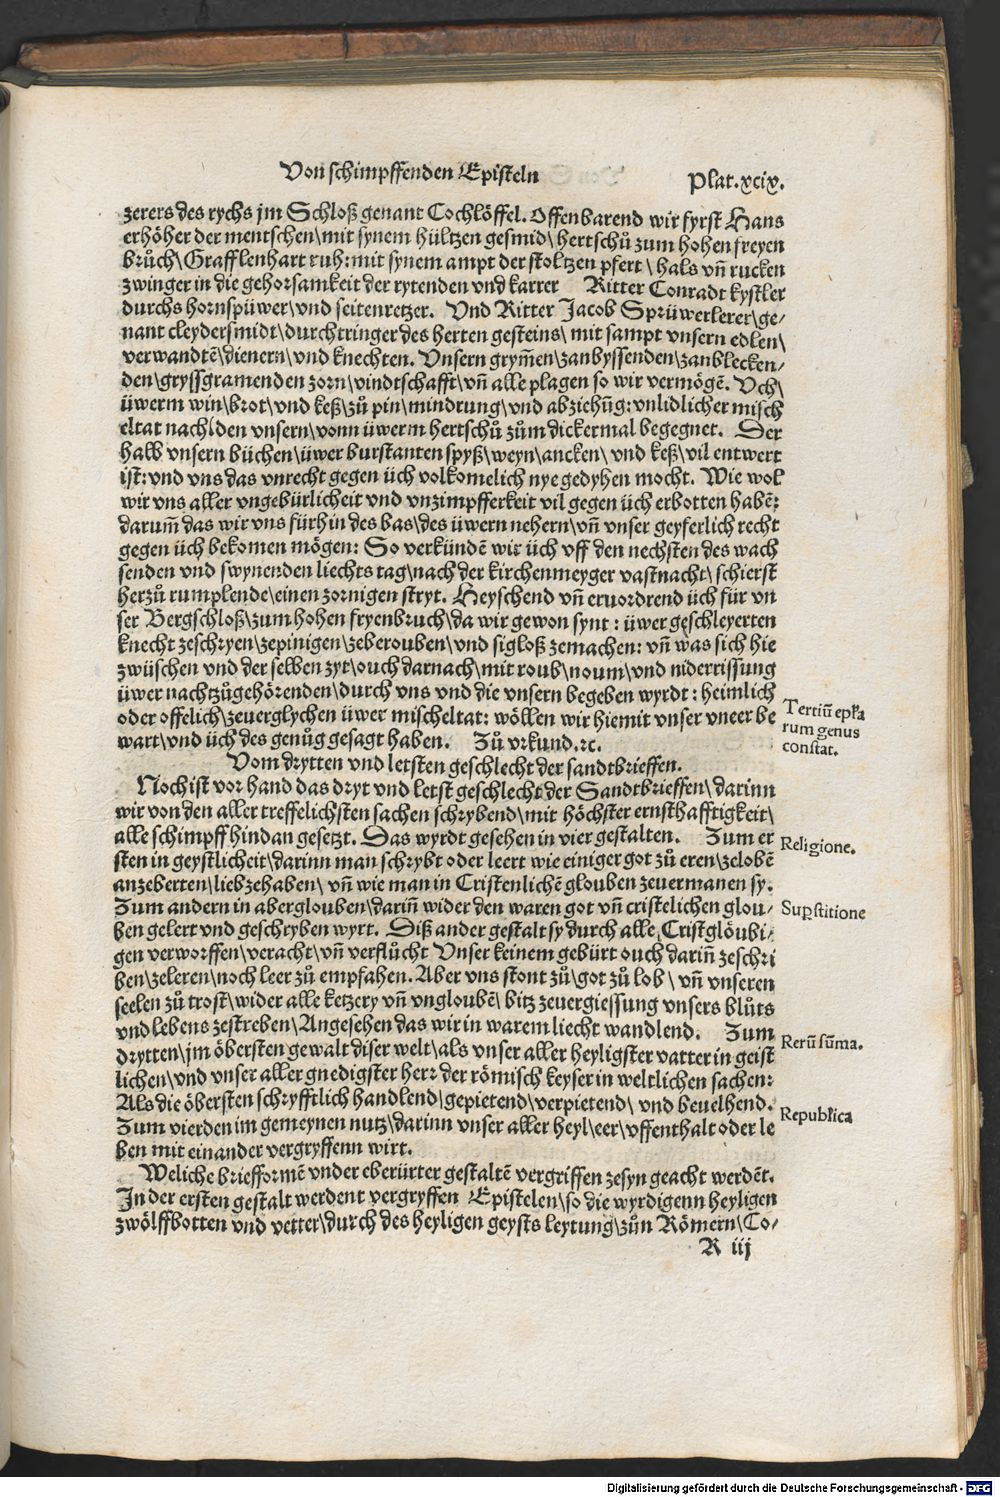 Von schimpffenden Episteln
Plat.xcix.
zerers des rychs jm Schloß genant Cochlöffel. Offenbarend wir fyrst Hans
erhöher der mentschen\mit synem hültzen gesmid\ hertschů zum hohen freyen
brůch\Grafflenhart ruh:mit synem ampt der stoltzen pfert \ hals vñ rucken
zwinger in die gehorsamkeit der rytenden vnd karrer Ritter Conradt kystler
durchs hornspüwer\vnd seitenretzer. Vnd Ritter Jacob Sprüwerlerer\ge/
nant cleydersmidt\durchtringer des herten gesteins\ mit sampt vnsern edlen\
verwandtē\dienern\vnd knechten. Vnsern grym̄en\zanbyssenden\zanblecken/
den\gryssgramenden zorn\vindtschafft\vñ alle plagen so wir vermögē. Vch\
üwerm win\brot\vnd keß\zů pin\mindrung\vnd abziehūg:vnlidlicher misch
eltat nach den vnsern\vonn üwerm hertschů zům dickermal begegnet. Der
halb vnsern büchen\üwer burstanten spyß\weyn\ancken\ vnd keß\vil entwert
ist:vnd vns das vnrecht gegen üch volkomelich nye gedyhen mocht. Wie wol
wir vns aller vngebürlicheit vnd vnzimpfferkeit vil gegen üch erbotten habē:
darum̄ das wir vns fürhin des bas\des üwern nehern\vñ vnser geyferlich recht
gegen üch bekomen mögen: So verkündē wir üch vff den nechsten des wach
senden vnd swynenden liechts tag\nach der kirchenmeyger vastnacht\ schierst
herzů rumplende\einen zornigen stryt. Heyschend vñ eruordrend üch für vn
ser Bergschloß\zum hohen fryenbruch\da wir gewon synt : üwer geschleyerten
knecht zeschryen\zepinigen\zeberouben\vnd sigloß zemachen: vñ was sich hie
zwüschen vnd der selben zyt\ouch darnach\mit roub\noum\vnd niderrissung
üwer nachtzůgehörenden\durch vns vnd die vnsern begeben wyrdt: heimlich
oder offelich\zeuerglychen üwer mischeltat: wöllen wir hiemit vnser vneer be
wart\vnd üch des genůg gesagt haben. Zů vrkund.⁊c.
Tertiū epl̄a
rum genus
constat.
Vom drytten vnd letsten geschlecht der sandtbrieffen.
Noch ist vor hand das dryt vnd letst geschlecht der Sandtbrieffen\ darinn
wir von den aller treffelichsten sachen schrybend\mit höchster ernsthafftigkeit\
alle schimpff hindan gesetzt. Das wyrdt gesehen in vier gestalten. Zum er
Religione.
sten in geystlicheit\darinn man schrybt oder leert wie einiger got zů eren\zelobē
anzeberten\liebzehaben\ vñ wie man in Cristenlichē glouben zeuermanen sy.
Zum andern in aberglouben\dariñ wider den waren got vñ cristelichen glou/
Suꝑstitione
ben gelert vnd geschryben wyrt. Diß ander gestalt sy durch alle Cristglöubi/
gen verworffen\veracht\vñ verflůcht Vnser keinem gebürt ouch dariñ zeschri
ben\zeleren\noch leer zů empfahen. Aber vns stont zů\got zů lob \ vñ vnseren
seelen zů trost\wider alle ketzery vñ vngloubē\ bitz zeuergiessung vnsers blůts
vnd lebens zestreben\Angesehen das wir in warem liecht wandlend. Zum
Rerū sūma.
drytten\jm öbersten gewalt diser welt\als vnser aller heyligster vatter in geist
lichen\vnd vnser aller gnedigster herr der römisch keyser in weltlichen sachen:
Als die öbersten schryfftlich handlend\gepietend\verpietend\ vnd beuelhend.
Republica
Zum vierden im gemeynen nutz\darinn vnser aller heyl\eer\vffenthalt oder le
ben mit einander vergryffenn wirt.
Weliche briefformē vnder eberürter gestaltē vergriffen zesyn geacht werdēt.
In der ersten gestalt werdent vergryffen Epistelen\so die wyrdigenn heyligen
zwölffbotten vnd vetter\durch des heyligen geysts leytung\zůn Römern\Co/
R iij
Digitalisierung gefördert durch die Deutsche Forschungsgemeinschaft - DFG